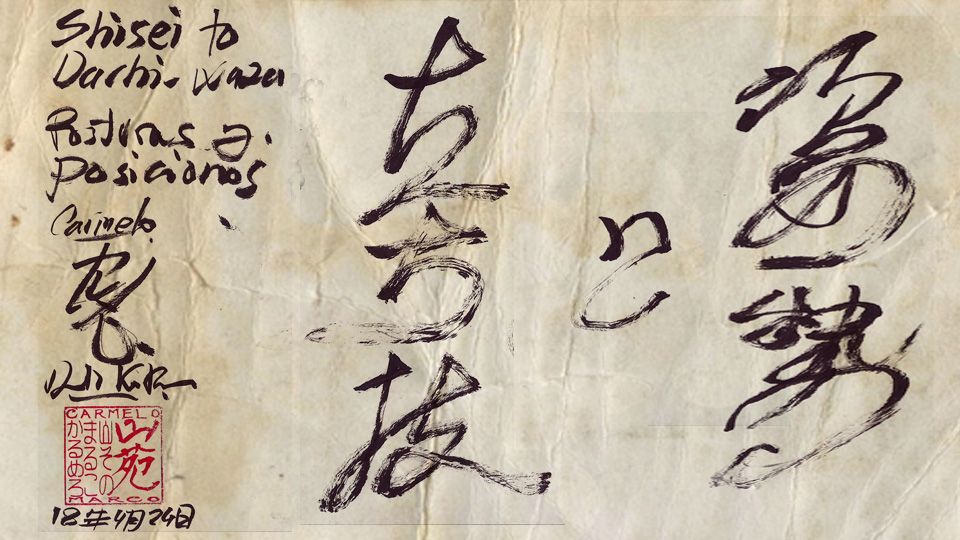 姿勢
と
立ち技
Shisei to
Dachi-waza
Posturas y
posiciones
Carmelo
CARMELO
山苑
山その
まるこ
かるめろ
MARCO
18年4月24日